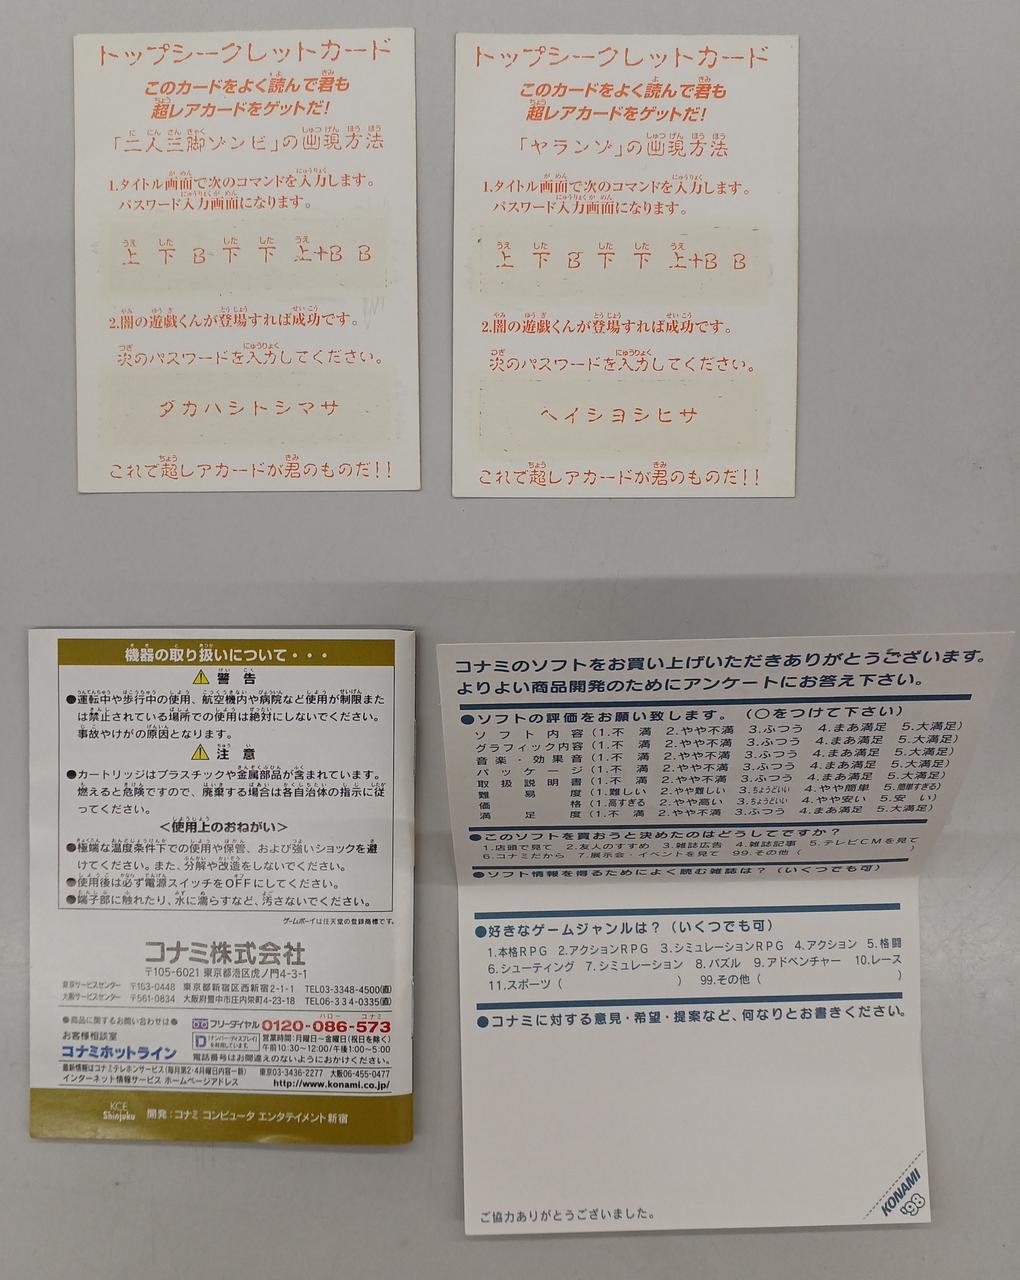 トップシークレットカード
このカードをよく読んで君も
超レアカードをゲットだ!
「二人三脚ゾンビ」の出現方法
1.タイトル画面で次のコマンドを入力します。
パスワード入力画面になります。
上 下 B 下 下 上+B B
2.闇の遊戯くんが登場すれば成功です。
次のパスワードを入力してください。
ダカハシトシマサ
これで超レアカードが君のものだ!!
トップシークレットカード
このカードをよく読んで君も
超レアカードをゲットだ!
「ヤランゾ」の出現方法
1.タイトル画面で次のコマンドを入力します。
パスワード入力画面になります。
上 下 B 下 下 上+B B
2.闇の遊戯くんが登場すれば成功です。
次のパスワードを入力してください。
ヘイシヨシヒサ
これで超レアカードが君のものだ!!
機器の取り扱いについて・・・
警告
●運転中や歩行中の使用、航空機内や病院など使用が制限また
は禁止されている場所での使用は絶対にしないでください。
事故やけがの原因となります。
注意
●カートリッジはプラスチックや金属部品が含まれています。
燃えると危険ですので、廃棄する場合は各自治体の指示に従
ってください。
<使用上のおねがい>
●極端な温度条件下での使用や保管、および強いショックを避
けてください。また、分解や改造をしないでください。
●使用後は必ず電源スイッチをOFFにしてください。
●端子部に触れたり、水に濡らすなど、汚さないでください。
ゲームボーイは任天堂の登録商標です。
コナミ株式会社
〒105-6021 東京都港区虎ノ門4-3-1
東京サービスセンター 〒163-0448 東京都新宿区西新宿2-1-1 TEL03-3348-4500(直)
大阪サービスセンター 〒561-0834 大阪府豊中市庄内栄町4-23-18 TEL06-334-0335(直)
●商品に関するお問い合わせは●
お客様相談室
コナミホットライン
フリーダイヤル 0120-086-573
ハロー コナミ
ナンバー・ディスプレイを利用しています。
営業時間:月曜日〜金曜日(祝日を除く)
午前10:30〜12:00/午後1:00〜5:00
電話番号はお間違えのないようにおかけください。
最新情報はコナミテレホンサービス(毎月第2・4月曜日内容一新) 東京03-3436-2277 大阪06-455-0477
インターネット情報サービス ホームページアドレス http://www.konami.co.jp/
KCE Shinjuku 開発:コナミ コンピュータ エンタテイメント新宿
コナミのソフトをお買い上げいただきありがとうございます。
よりよい商品開発のためにアンケートにお答え下さい。
●ソフトの評価をお願い致します。(○をつけて下さい)
ソフト内容(1.不満 2.やや不満 3.ふつう 4.まあ満足 5.大満足)
グラフィック内容(1.不満 2.やや不満 3.ふつう 4.まあ満足 5.大満足)
音楽・効果音(1.不満 2.やや不満 3.ふつう 4.まあ満足 5.大満足)
パッケージ(1.不満 2.やや不満 3.ふつう 4.まあ満足 5.大満足)
取扱説明書(1.不満 2.やや不満 3.ふつう 4.まあ満足 5.大満足)
難易度(1.難しい 2.やや難しい 3.ちょうどいい 4.やや簡単 5.簡単すぎる)
価格(1.高すぎる 2.やや高い 3.ちょうどいい 4.やや安い 5.安い)
満足度(1.不満 2.やや不満 3.ふつう 4.まあ満足 5.大満足)
●このソフトを買おうと決めたのはどうしてですか?
1.店頭で見て 2.友人のすすめ 3.雑誌広告 4.雑誌記事 5.テレビCMを見て
6.コナミだから 7.展示会・イベントを見て 99.その他( )
●ソフト情報を得るためによく読む雑誌は?(いくつでも可)
●好きなゲームジャンルは?(いくつでも可)
1.本格RPG 2.アクションRPG 3.シミュレーションRPG 4.アクション 5.格闘
6.シューティング 7.シミュレーション 8.パズル 9.アドベンチャー 10.レース
11.スポーツ( ) 99.その他( )
●コナミに対する意見・希望・提案など、何なりとお書きください。
ご協力ありがとうございました。
KONAMI '98